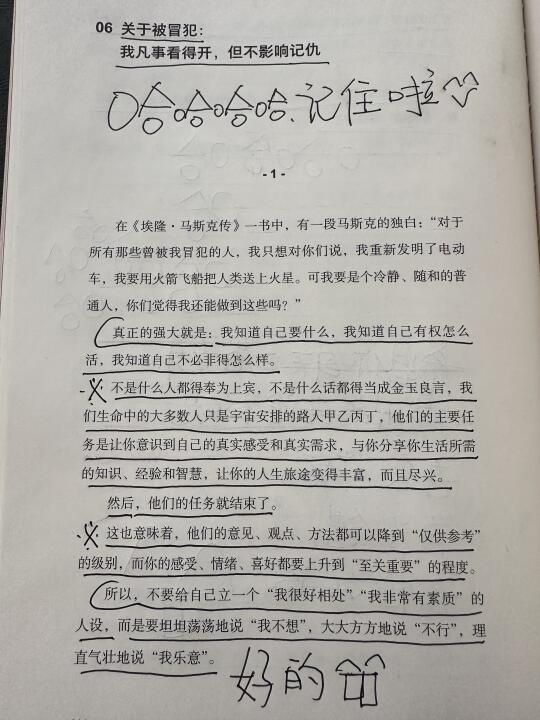 06 关于被冒犯：
我凡事看得开，但不影响记仇
哈哈哈哈、记住啦
-1-
在《埃隆·马斯克传》一书中，有一段马斯克的独白：“对于
所有那些曾被我冒犯的人，我只想对你们说，我重新发明了电动
车，我要用火箭飞船把人类送上火星。可我要是个冷静、随和的普
通人，你们觉得我还能做到这些吗？”
真正的强大就是：我知道自己要什么，我知道自己有权怎么
活，我知道自己不必非得怎么样。
不是什么人都得奉为上宾，不是什么话都得当成金玉良言，我
们生命中的大多数人只是宇宙安排的路人甲乙丙丁，他们的主要任
务是让你意识到自己的真实感受和真实需求，与你分享你生活所需
的知识、经验和智慧，让你的人生旅途变得丰富，而且尽兴。
然后，他们的任务就结束了。
这也意味着，他们的意见、观点、方法都可以降到“仅供参考”
的级别，而你的感受、情绪、喜好都要上升到“至关重要”的程度。
所以，不要给自己立一个“我很好相处”“我非常有素质”的
人设，而是要坦坦荡荡地说“我不想”，大大方方地说“不行”，理
直气壮地说“我乐意”。
好的